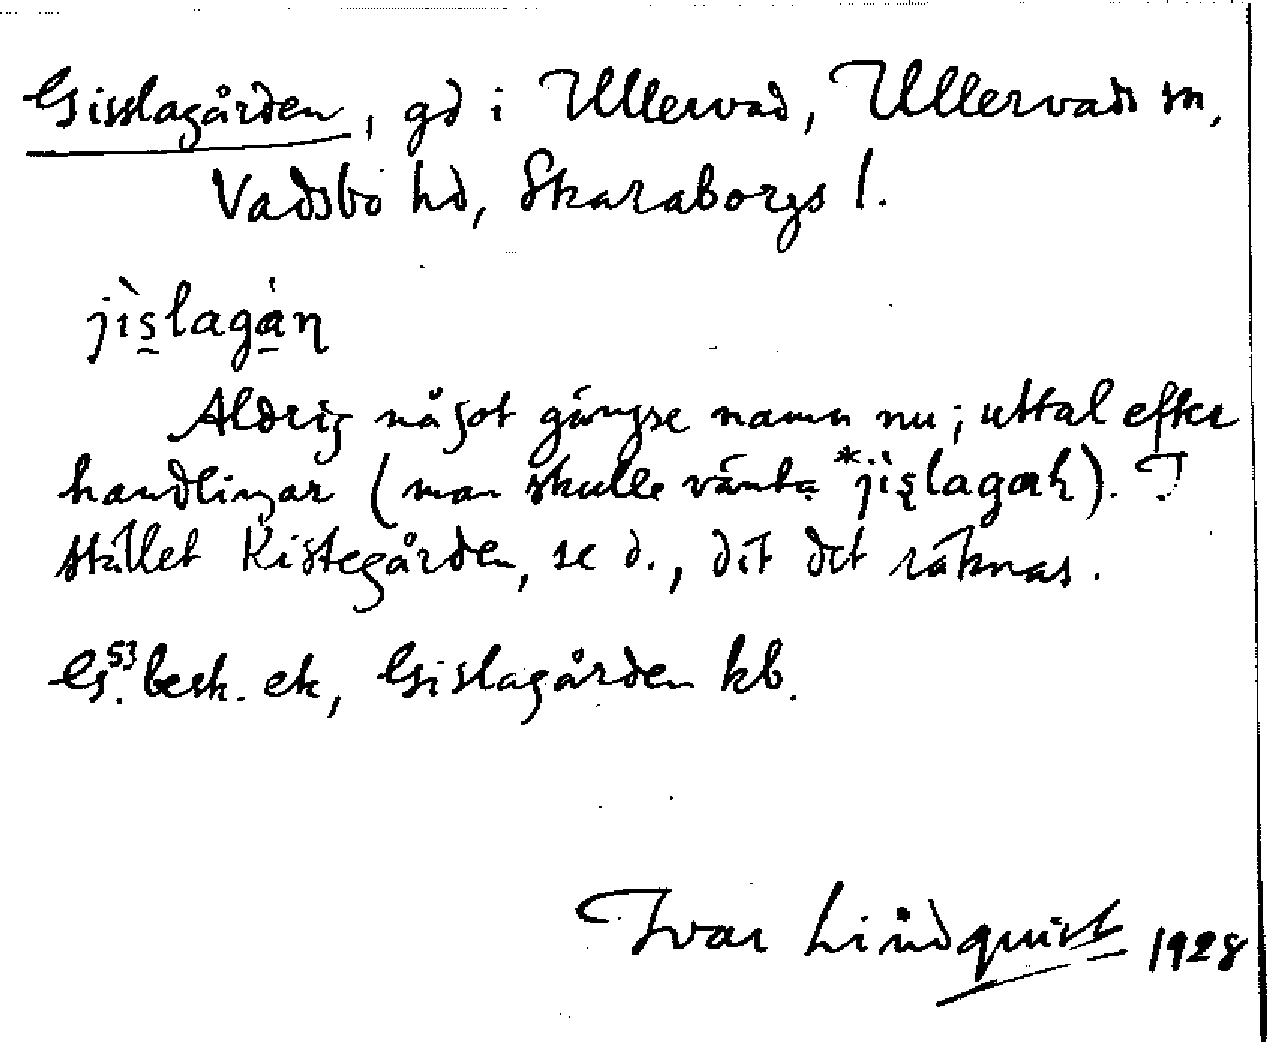 Gisslagården, gd i Ullervad, Ullervads sn,
Vadsbo hd, Skaraborgs l.
jìs̲lagá̲ŋ
Aldrig något gängse namn nu; uttal efter
handlingar (man skulle vänta *jìs̨lagaɳ). I
stället Kistegården, se d., dit det räknas.
G.⁵³ besk. ek, Gislagården kb.
Ivar Lindquist 1928